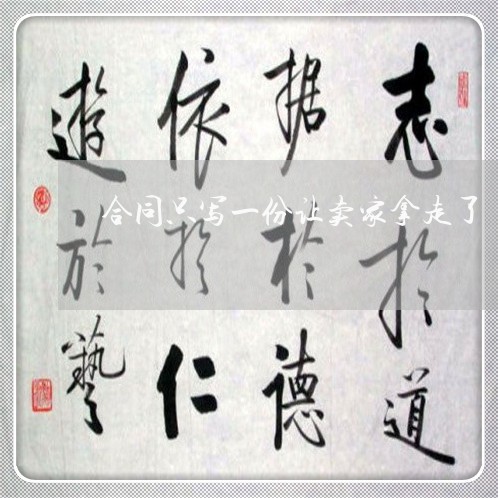 志於道
据於德
依於仁
遊於藝
合同只写一份让卖家拿走了